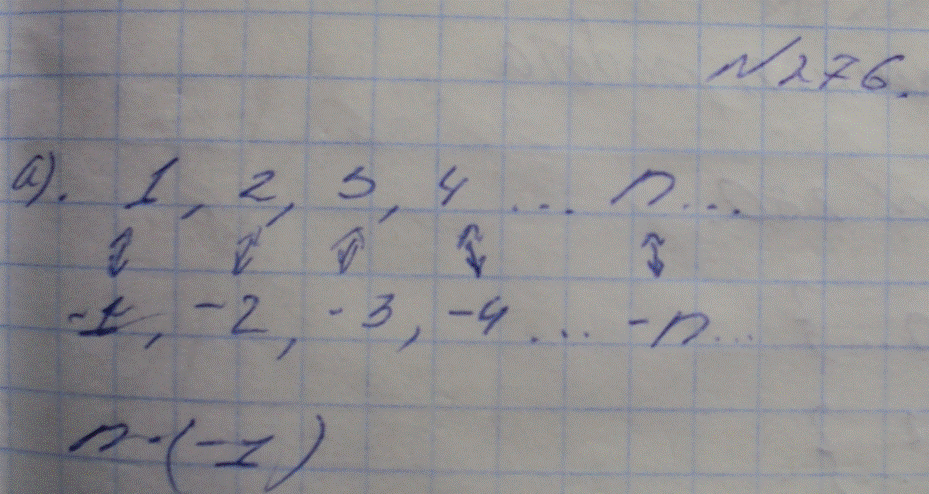 №276.
а). 1, 2, 3, 4 ... n...
↕ ↕ ↕ ↕ ↕
-1, -2, -3, -4 ... -n...
n·(-1)